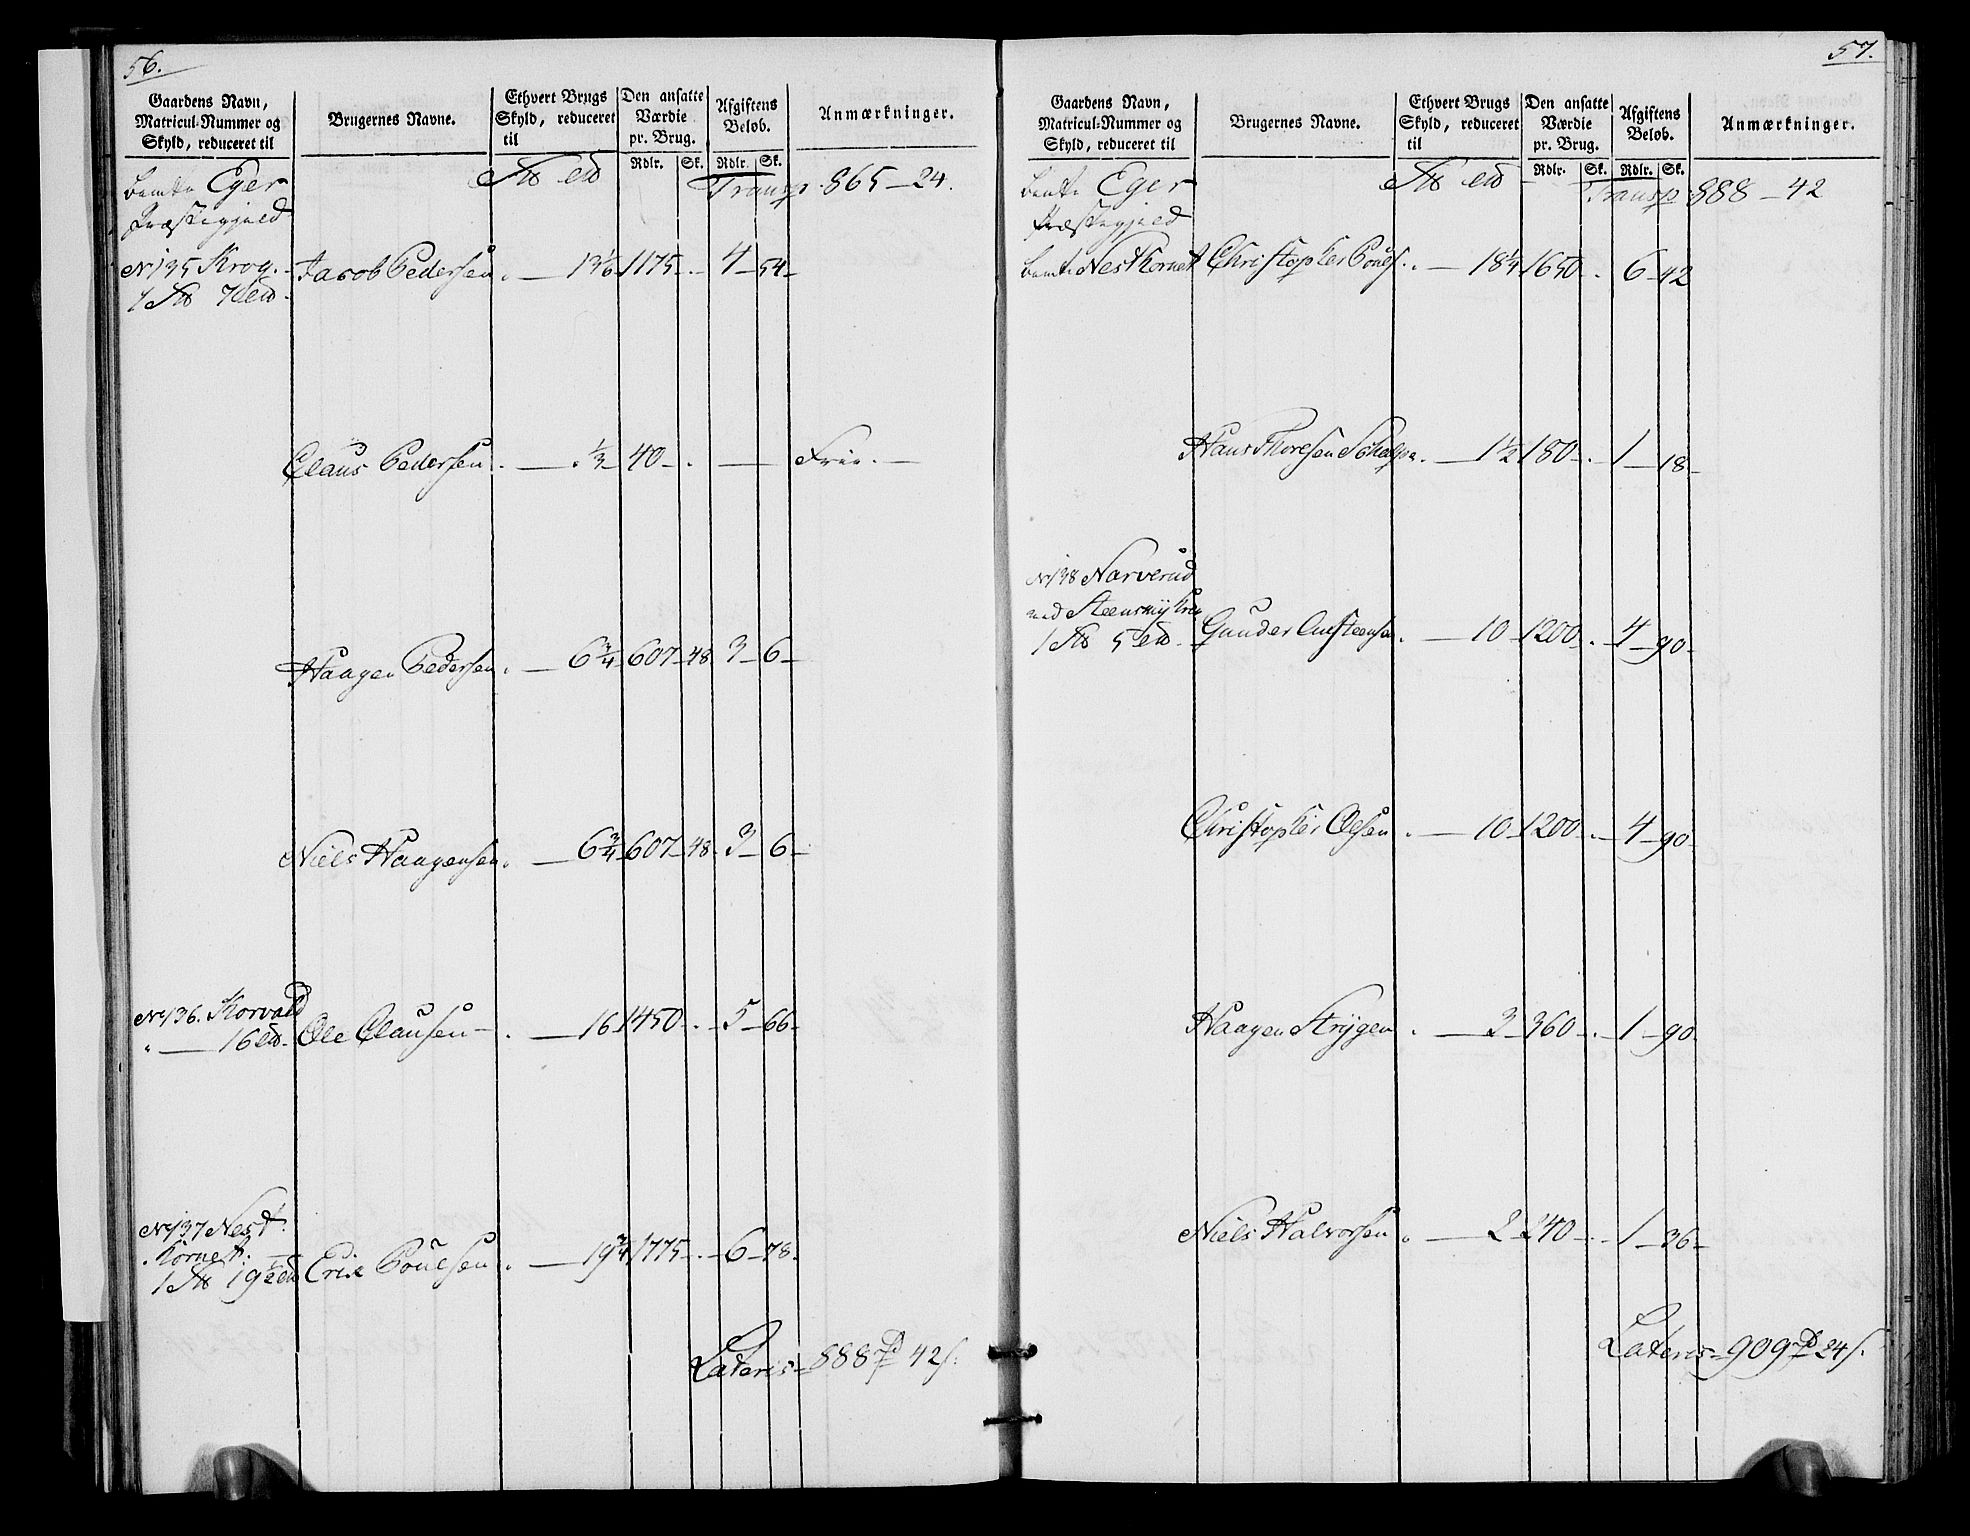 56.
Gaardens Navn, Matricul-Nummer og Skyld, reduceret til
Brugernes Navne.
Ethvert Brugs Skyld, reduceret til
Den ansatte Værdie pr. Brug.
Afgiftens Beløb.
Anmærkninger.
Rdlr. Sk. Rdlr. Sk.
bemte Eger Transp. 865 – 24.
Præstegjeld
No 135 Krog. Jacob Pedersen . — 13 1/6 1175 - . - 4 - 54 -
Claus Pedersen . — . 1/3 - 40 - . — Frie. —
Haagen Pedersen . — 6 3/4 607 - 48 3 - 6 -
Niels Haagensen . — 6 3/4 607 - 48 - 3 - 6 -
No 136. Korvald
" — 16 Ole Clausen - . — 16 1450 - . - 5 - 66 -
No 137 Nest
Kornet:
19 1/2 Eric Pouelsen . — 19 3/4 1775 - . - 6 - 78 -
Lateris - 888 42 s.
57.
Gaardens Navn, Matricul-Nummer og Skyld, reduceret til
Brugernes Navne.
Ethvert Brugs Skyld, reduceret til
Den ansatte Værdie pr. Brug.
Afgiftens Beløb.
Anmærkninger.
Rdlr. Sk. Rdlr. Sk.
bemte Eger Transp. 888 – 42
Præstegjeld
bemte Nest Kornet Christopher Pouels. . — 18 1/4 1650 - . 6 - 42
Hans Thoresen . — 1 1/2 180 - . 1 - 18 -
No 138 Narverud
1 5 Gunder . — 10 - 1200 - . - 4 - 90 -
Christopher Olsen . — 10 - 1200 - . - 4 - 90 -
Haagen Strygen . — 3 - 360 - . - 1 - 90 -
Niels Halvorsen . — 2 - 240 - . - 1 - 36 -
Lateris - 909 24 s.